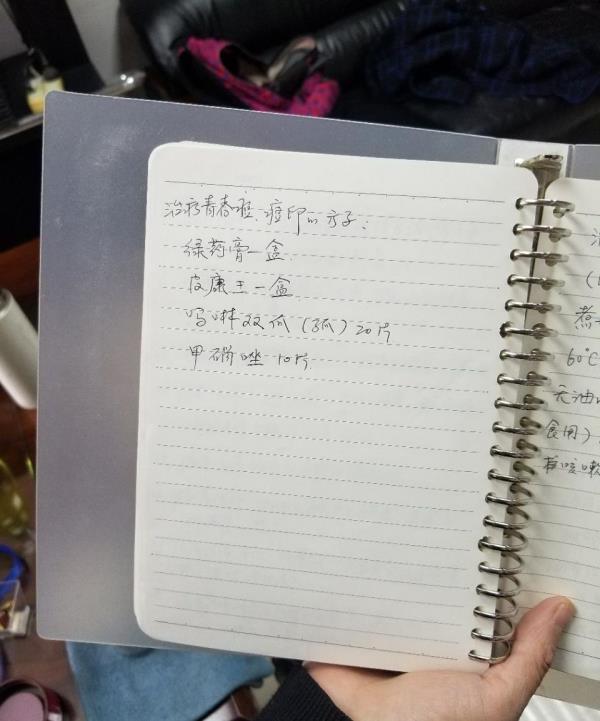 治疗青春痘、痘印的方子:
绿药膏一盒
皮康王一盒
吗啉双瓜(孤)20片
甲硝唑 10片
(
煮
60℃
无油
食用)